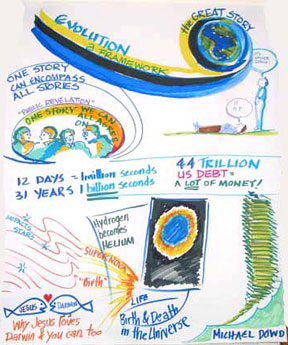 EVOLUTION
A FRAMEWORK
the GREAT STORY
ONE STORY
CAN ENCOMPASS
ALL STORIES
"PUBLIC REVELATION"
ONE STORY WE CAN
ALL AGREE
ON
12 DAYS = 1 million seconds
31 YEARS 1 billion seconds
44 TRILLION
US DEBT =
A LOT OF MONEY!
Hydrogen
becomes
HELIUM
STARS
SUPERNOVA
"Birth"
LIFE
Birth & Death
in the Universe
JESUS DARWIN
Why Jesus loves
Darwin & you can too
MICHAEL DOWD